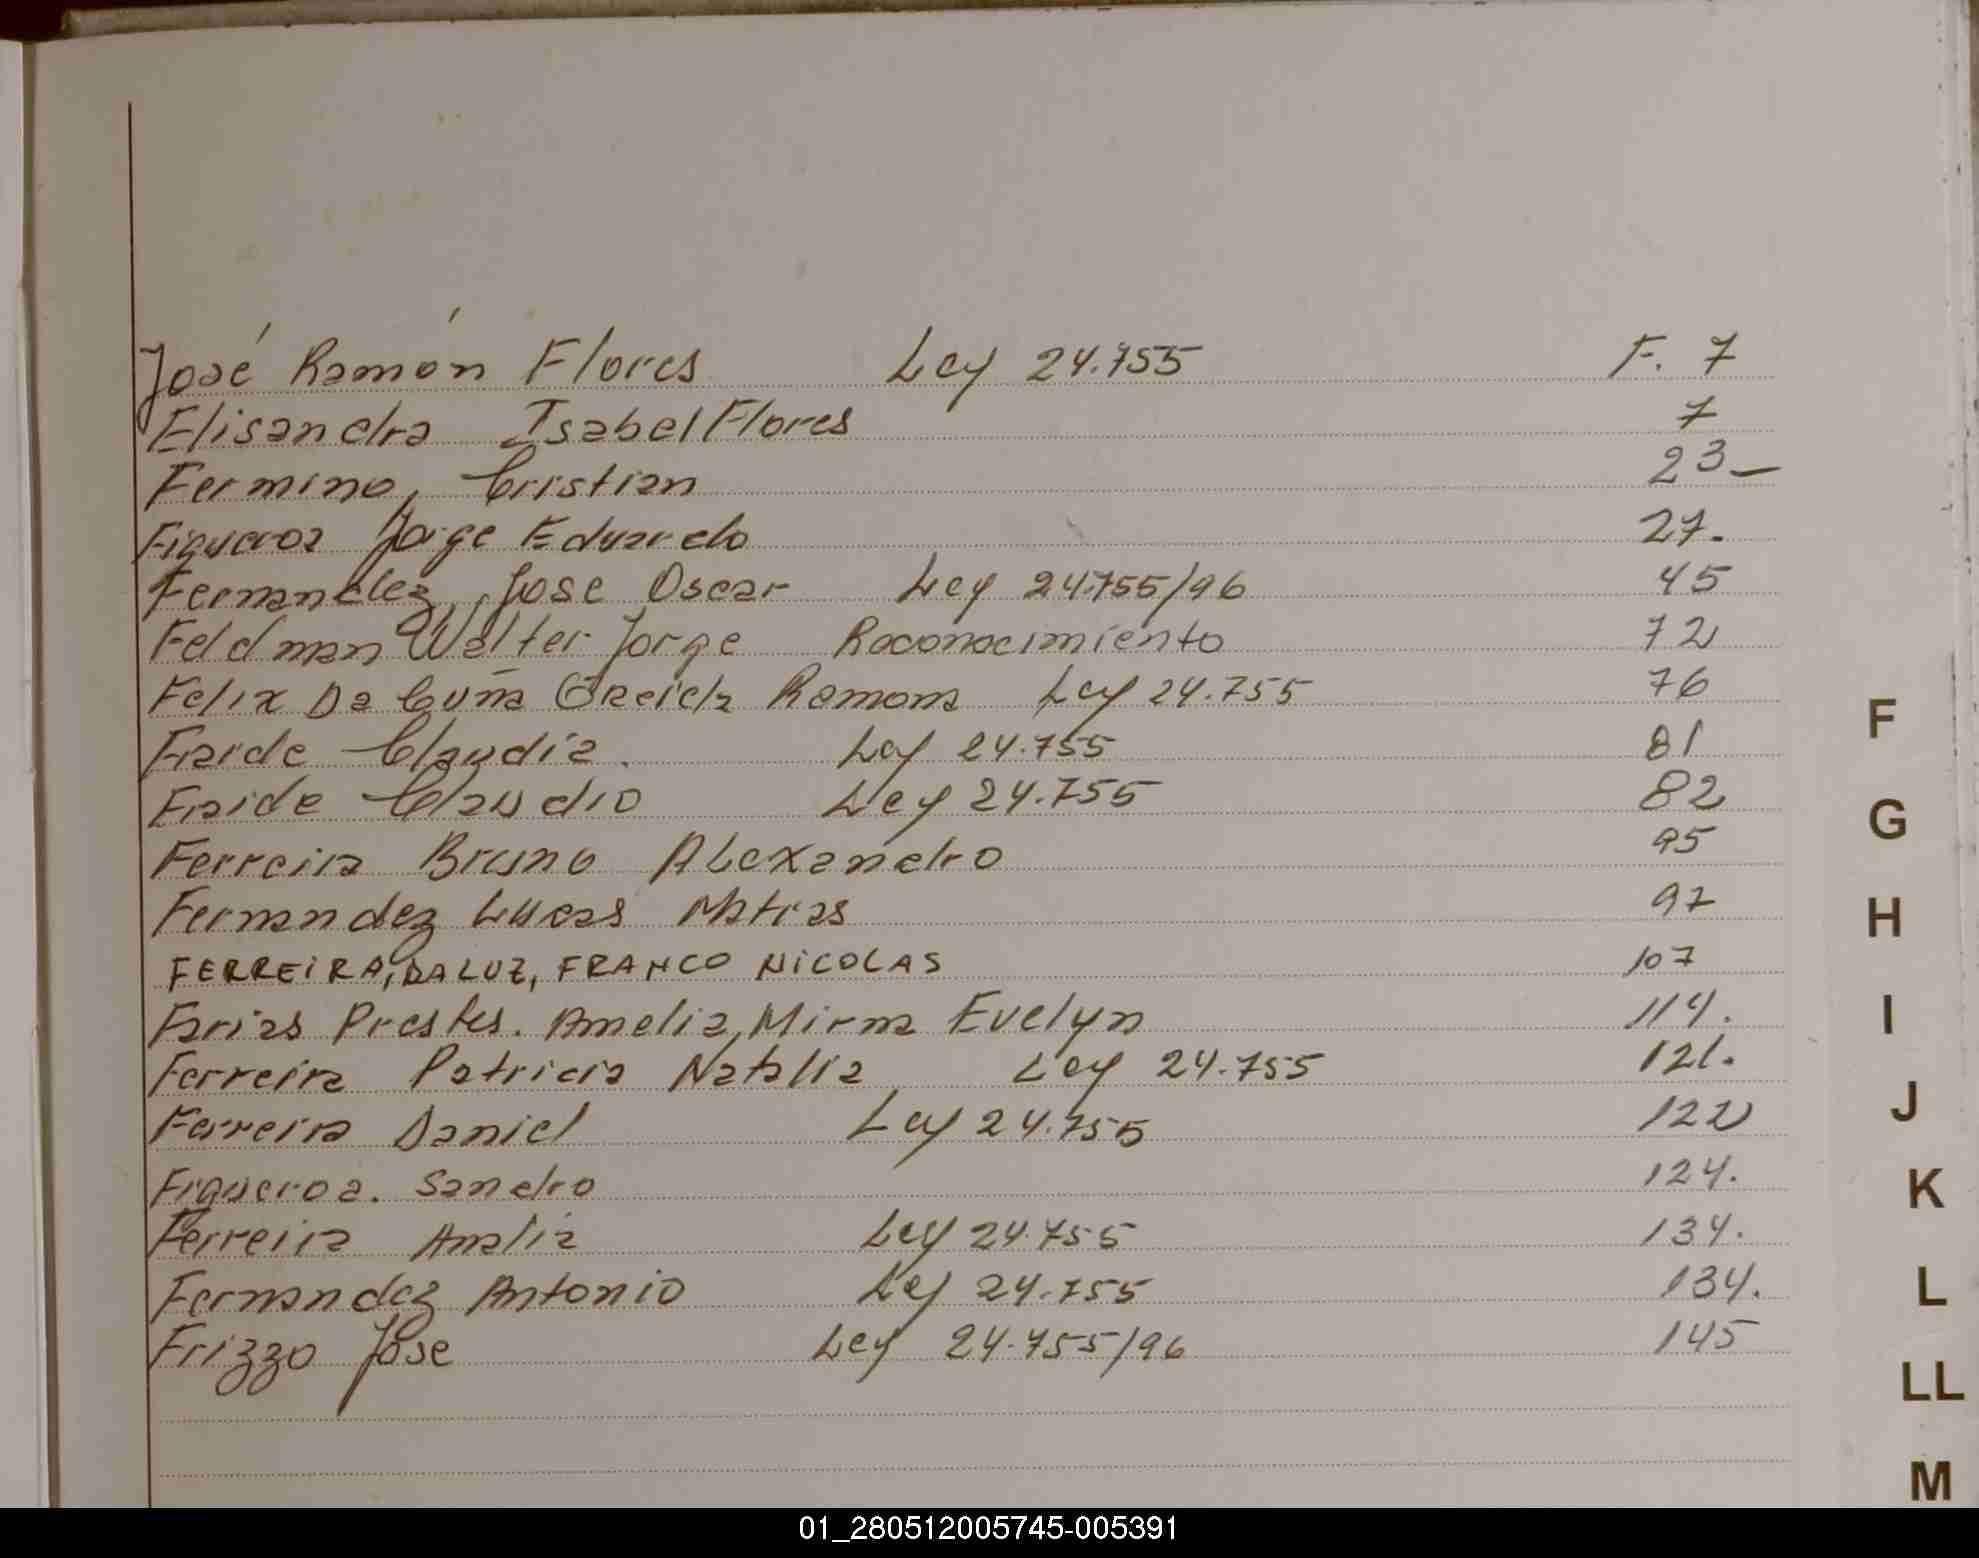 José Ramón Flores Ley 24.755 F. 7
Elisandra Isabel Flores 7
Fermino, Cristian 23-
Figueroa Jorge Eduardo 27.
Fernandez, Jose Oscar Ley 24.755/96 45
Feldman Walter Jorge Roconocimiento 72
Felix Da Cuña Ramona Ley 24.755 76
Fraide Claudia. Ley 24.755 81
Fraide Claudio Ley 24.755 82
Ferreira Bruno Alexandro 95
Fernandez Lucas Matias 97
FERREIRA, DA LUZ, FRANCO NICOLAS 107
Farias Prestes. Amelia, Mirna Evelyn 114.
Ferreira Patricia Natalia Ley 24.755 121.
Ferreira Daniel Ley 24.755 122
Figueroa. Sandro 124.
Ferreira Analia Ley 24.755 134.
Fernandez Antonio Ley 24.755 134.
Frizzo Jose Ley 24.755/96 145
F
G
H
I
J
K
L
LL
M
01_280512005745-005391